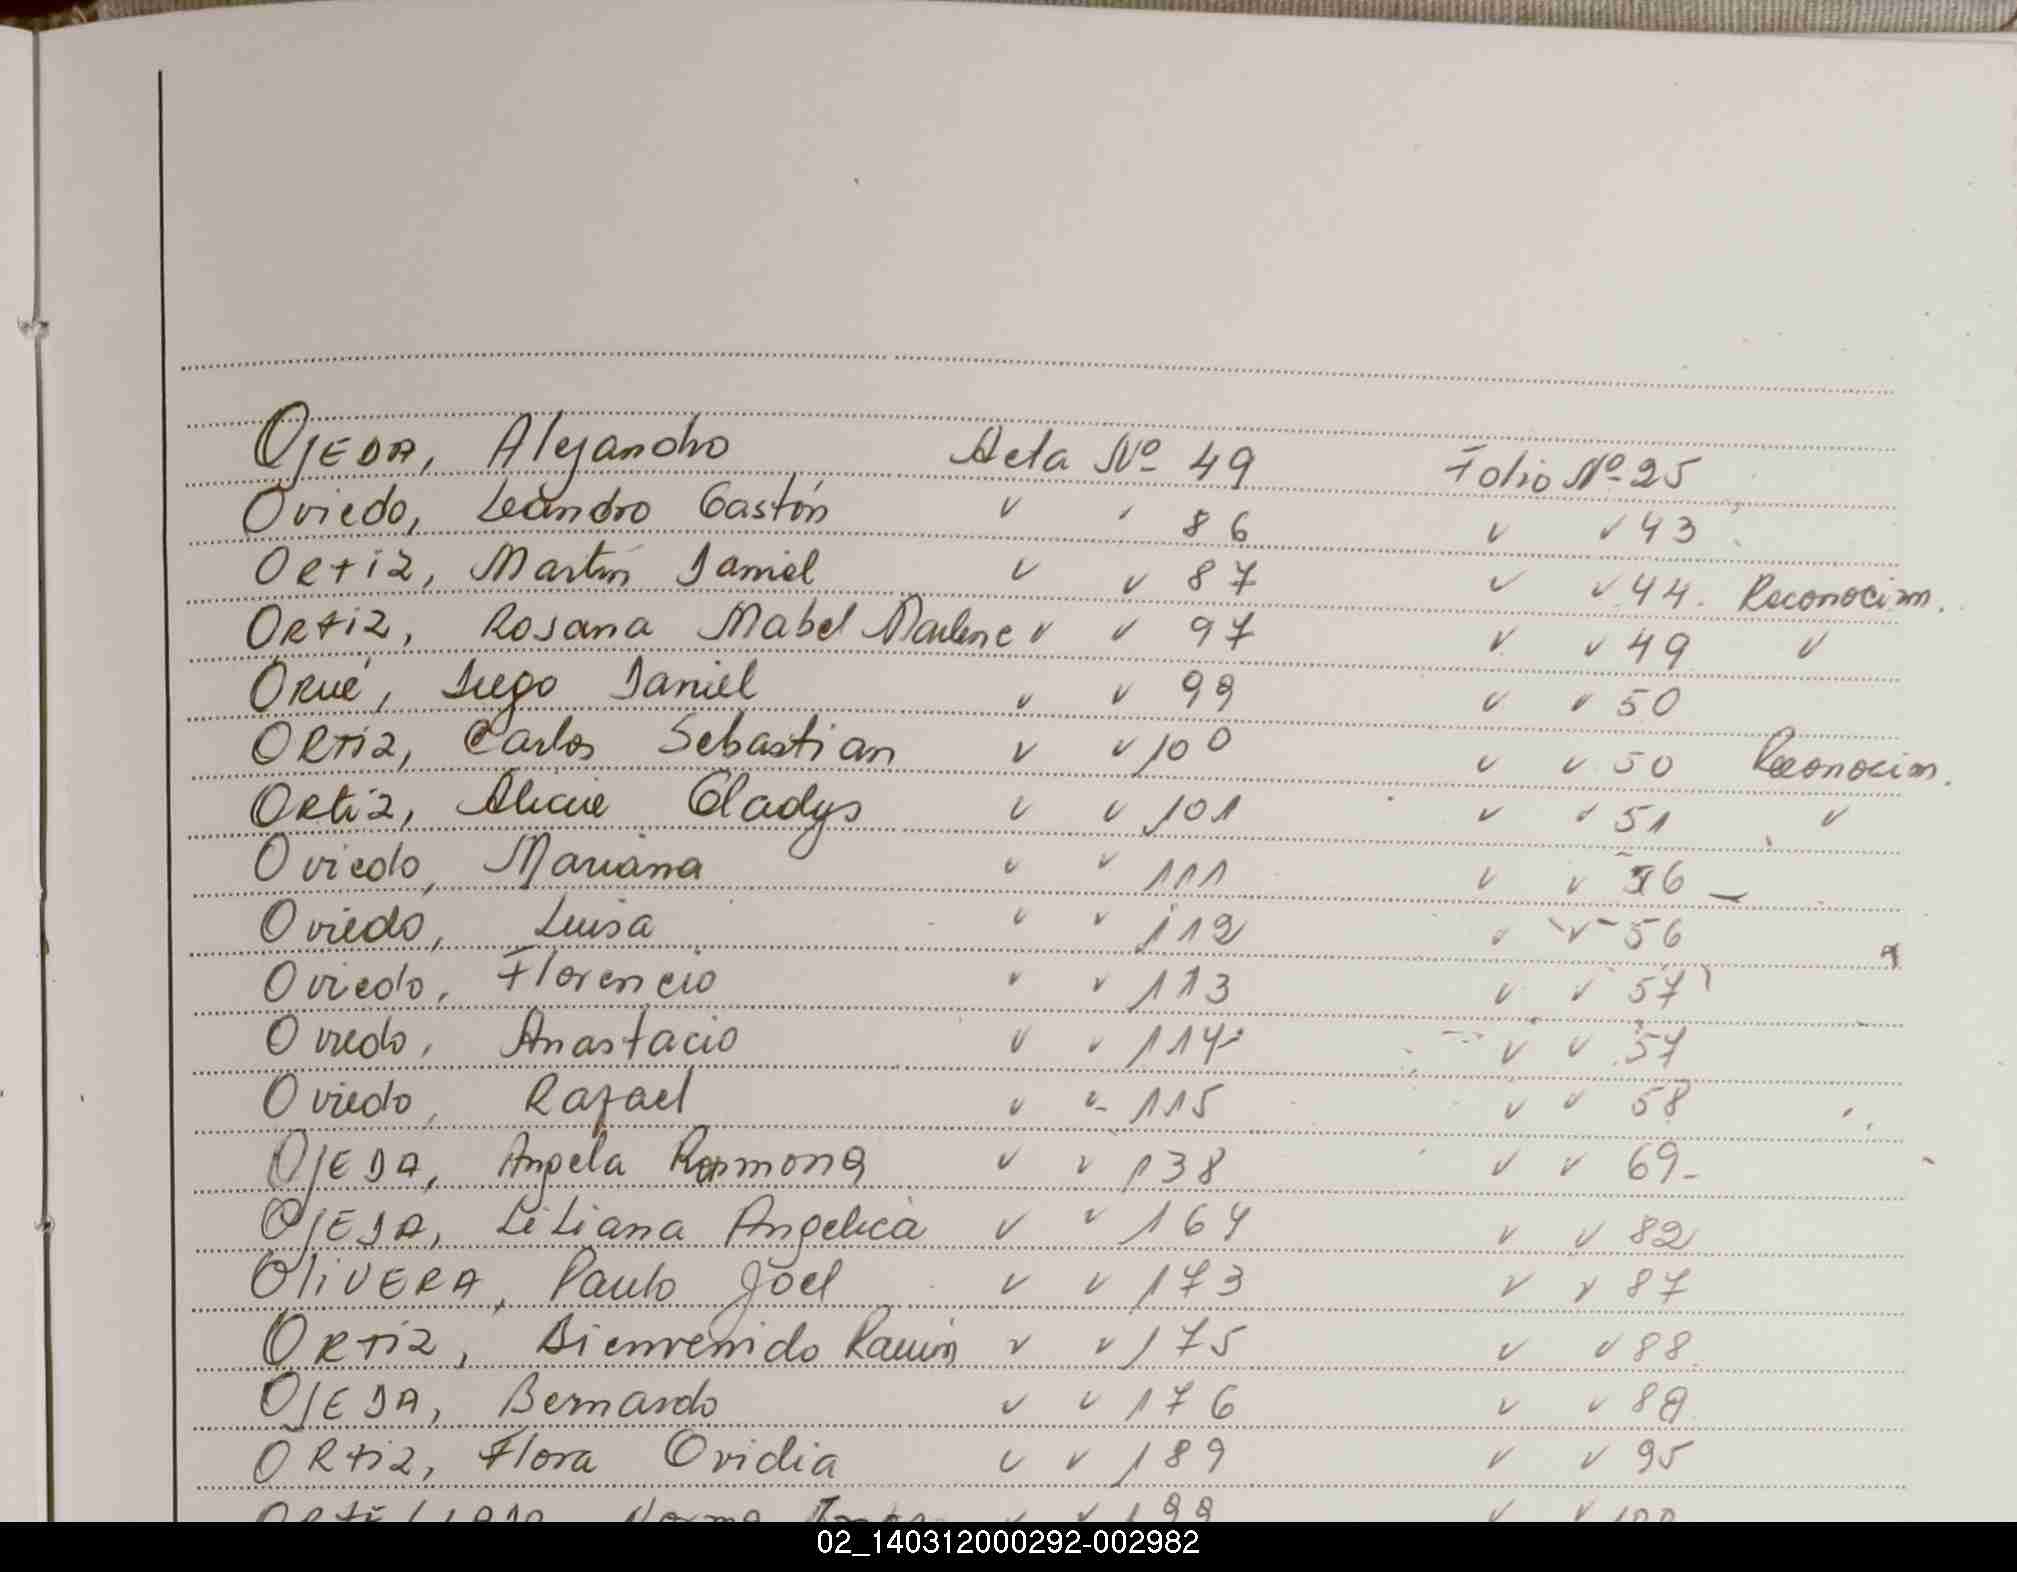 OJEDA, Alejandro Acta Nº 49 Folio Nº 25
Oviedo, Leandro Gastón " " 86 " " 43
ORtiz, Martín Daniel " " 87 " " 44. Reconocim.
ORtiz, Rosana Mabel Marlene " " 97 " " 49 "
ORué, Diego Daniel " " 99 " " 50
ORtiz, Carlos Sebastian " " 100 " " 50 Reconocim.
ORtiz, Alicia Gladys " " 101 " " 51 "
Oviedo, Mariana " " 111 " " 56
Oviedo, Luisa " " 112 " " 56
Oviedo, Florencio " " 113 " " 57
Oviedo, Anastacio " " 114 " " 57
Oviedo, Rafael " " 115 " " 58
OJEDA, Angela Ramona " " 138 " " 69-
OJEDA, Liliana Angelica " " 164 " " 82
OliVERA, Paulo Joel " " 173 " " 87
ORtiz, Bienvenido Ramón " " 175 " " 88
OJEDA, Bernardo " " 176 " " 88
ORtiz, Flora Ovidia " " 189 " " 95
02_140312000292-002982